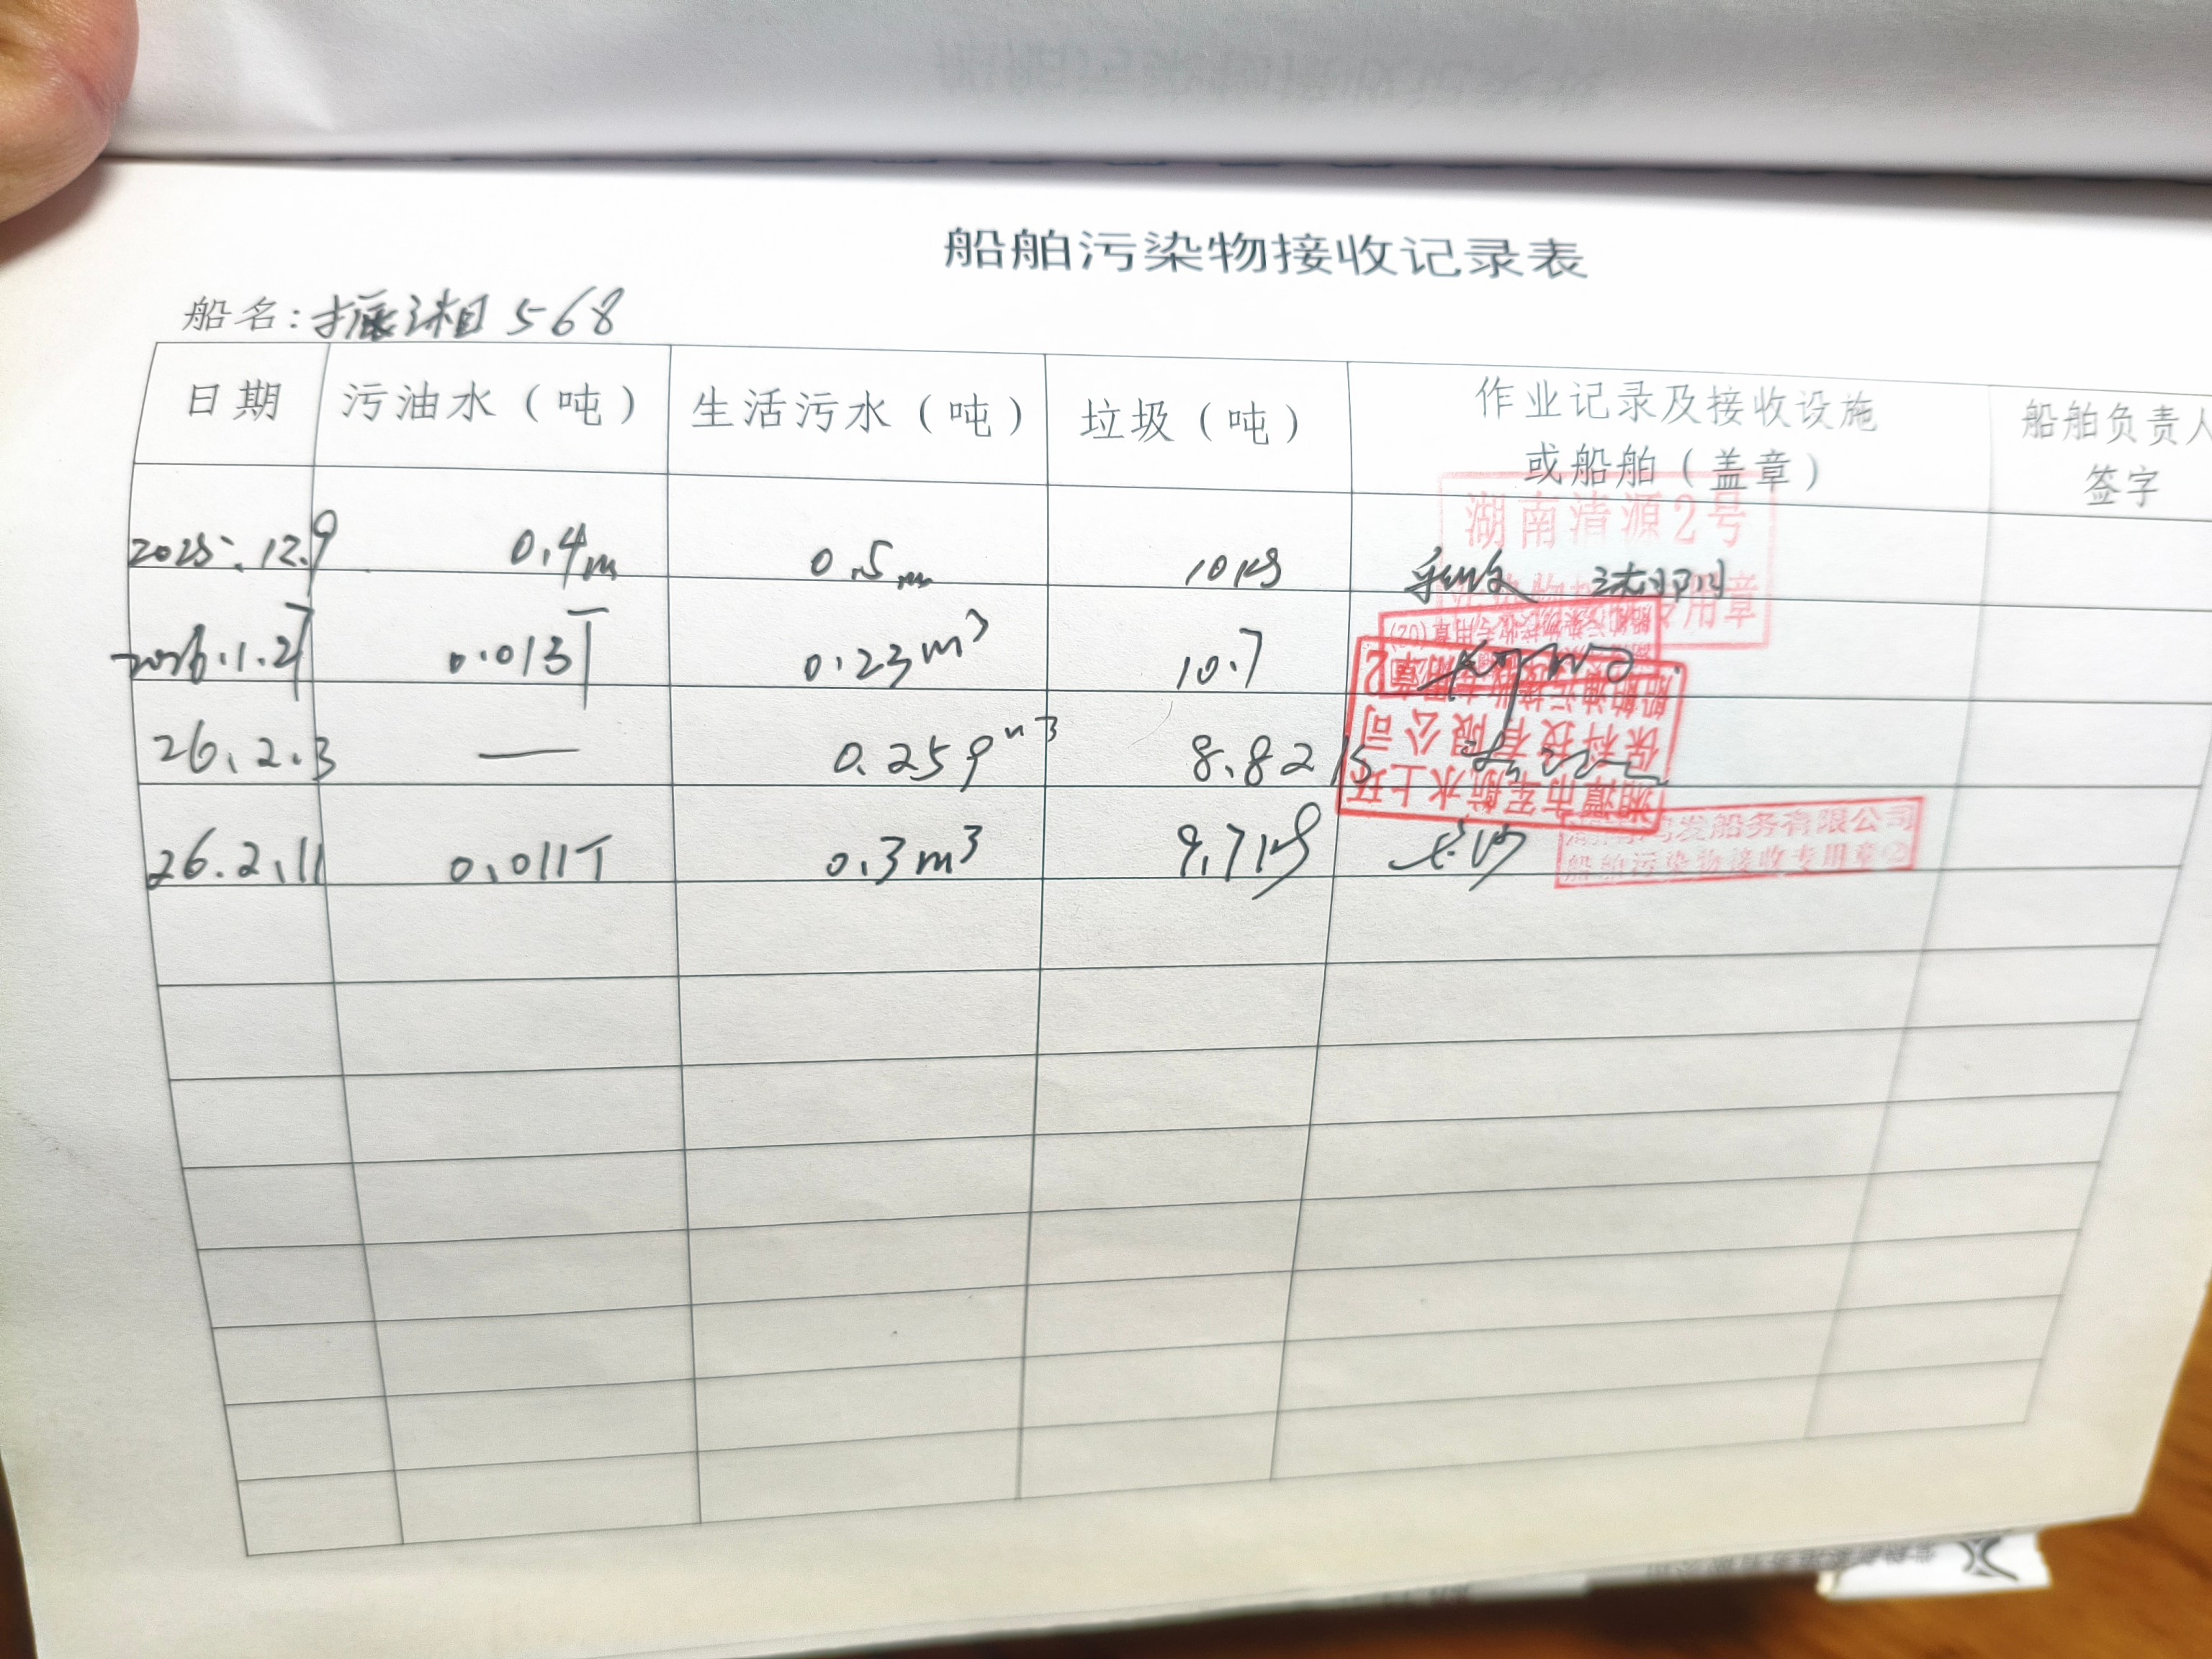 船舶污染物接收记录表
船名:振湘568
日期 污油水（吨） 生活污水（吨） 垃圾（吨） 作业记录及接收设施或船舶（盖章） 船舶负责人签字
2025.12.9 0.4m 0.5m 10kg
湖南清源2号
专用章
2026.1.27 0.013T 0.23m³ 10.7
船舶污染物接收专用章(02)
26.2.3 — 0.259m³ 8.82kg
湘潭市军航水上环
保科技有限公司
船舶油污接收专用章2
26.2.11 0.011T 0.3m³ 9.7kg
发船务有限公司
船舶污染物接收专用章②